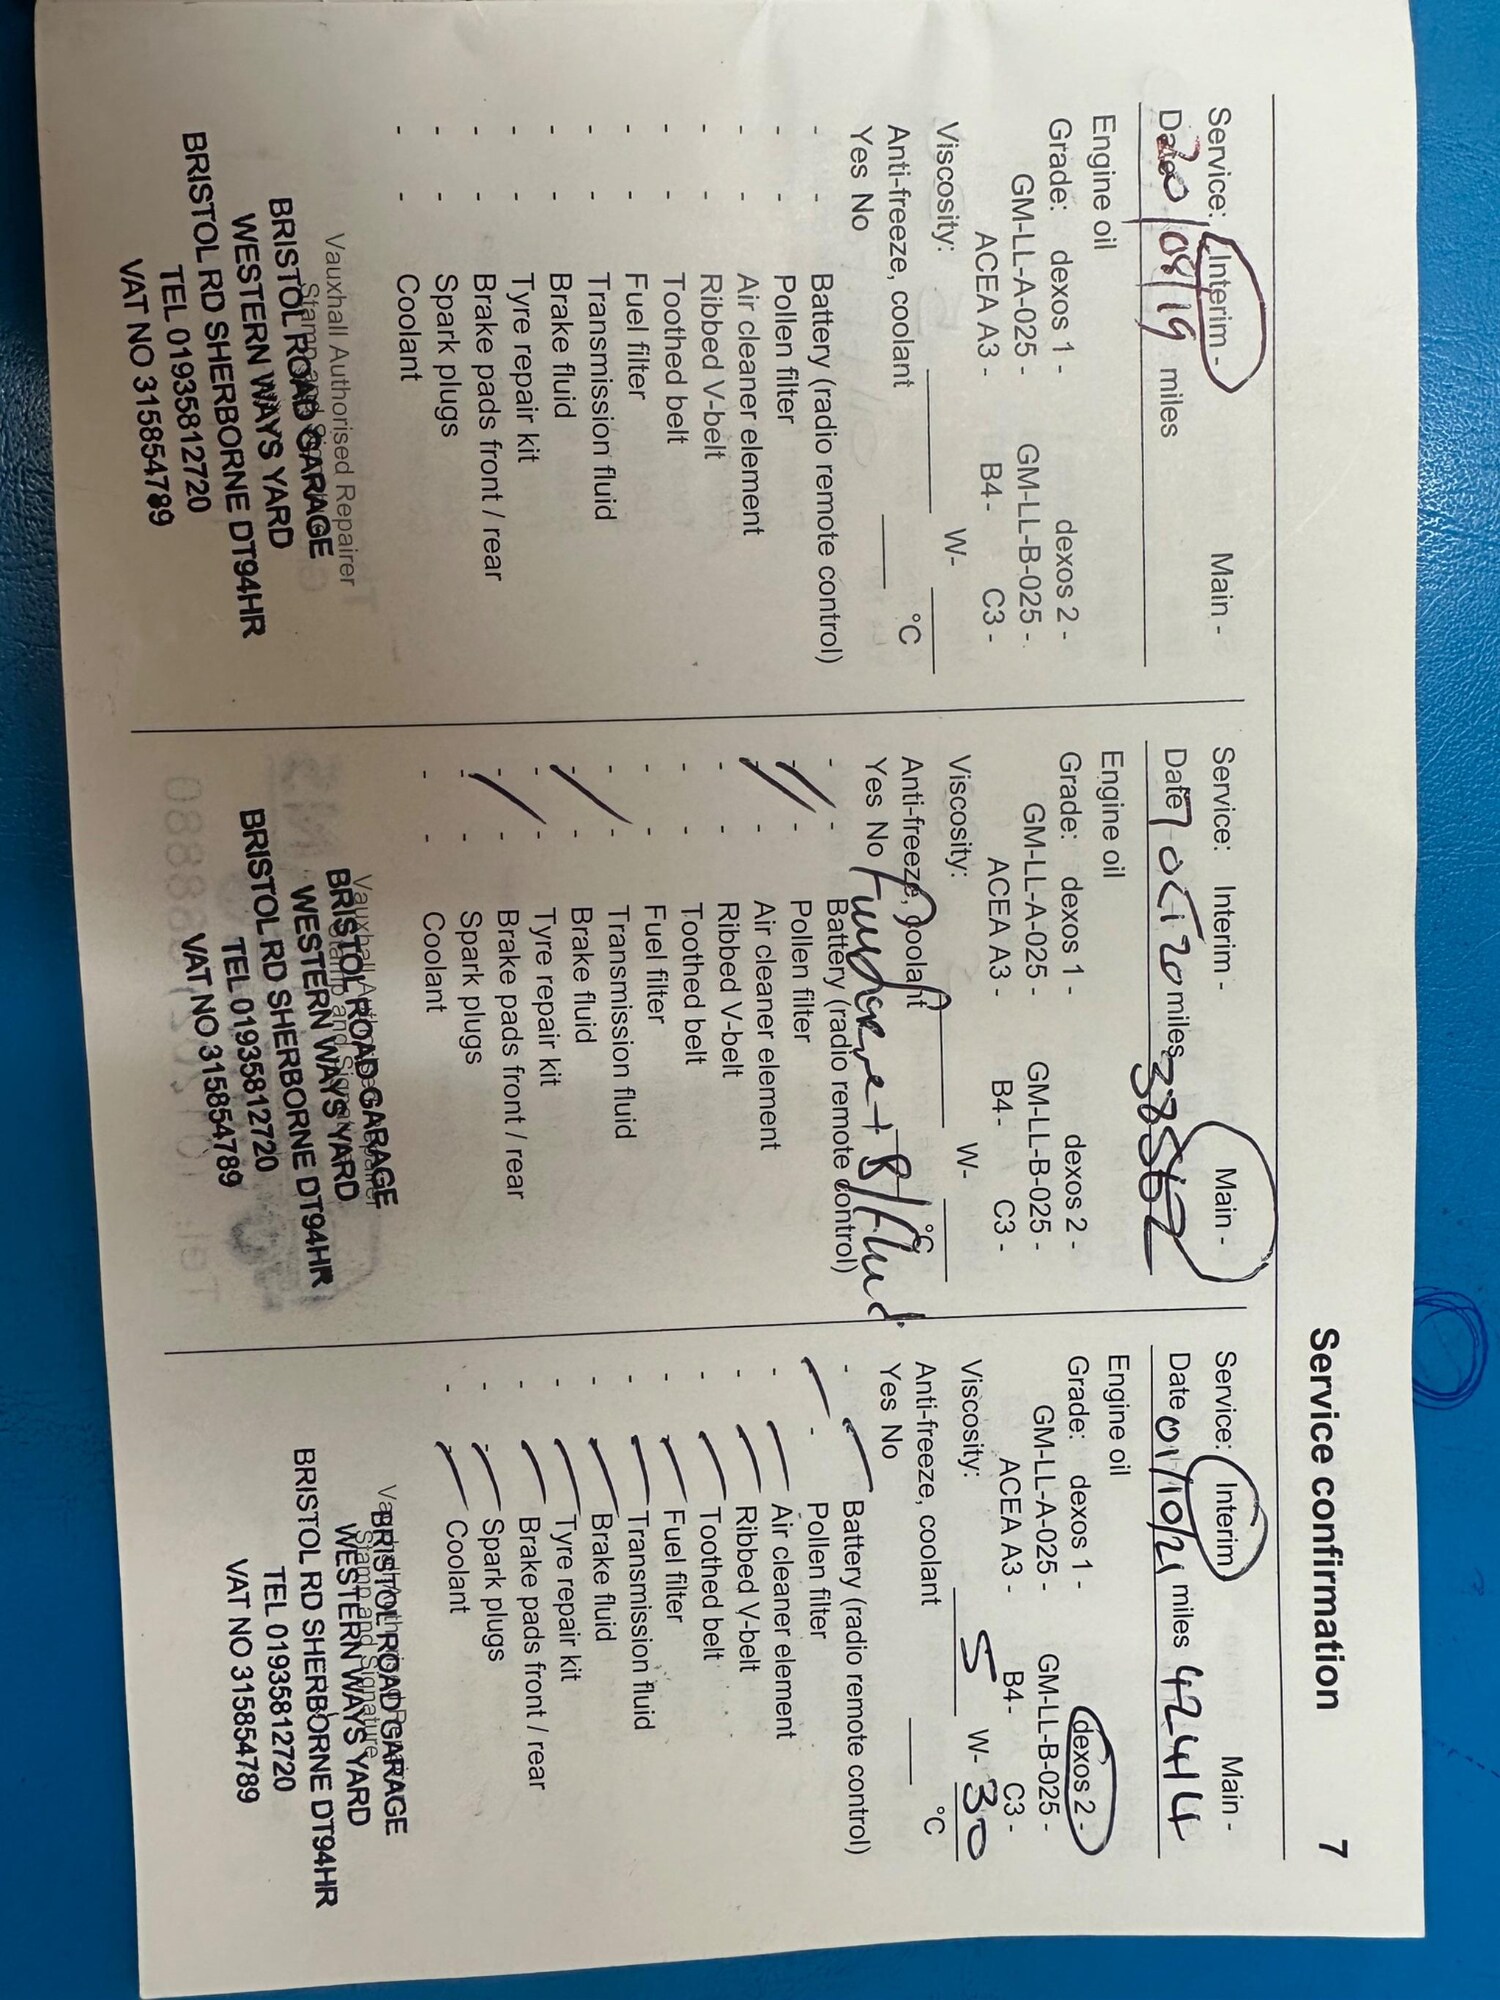 Service confirmation 7
Service: Interim - Main -
Date 20/08/19 miles
Engine oil
Grade: dexos 1 - dexos 2 -
GM-LL-A-025 - GM-LL-B-025 -
ACEA A3 - B4 - C3 -
Viscosity: W-
Anti-freeze, coolant °C
Yes No
- - Battery (radio remote control)
- - Pollen filter
- - Air cleaner element
- - Ribbed V-belt
- - Toothed belt
- - Fuel filter
- - Transmission fluid
- - Brake fluid
- - Tyre repair kit
- - Brake pads front / rear
- - Spark plugs
- - Coolant
Vauxhall Authorised Repairer
BRISTOL ROAD GARAGE
WESTERN WAYS YARD
BRISTOL RD SHERBORNE DT94HR
TEL 01935812720
VAT NO 315854789
Service: Interim - Main -
Date 7 OCT 20 miles 38562
Engine oil
Grade: dexos 1 - dexos 2 -
GM-LL-A-025 - GM-LL-B-025 -
ACEA A3 - B4 - C3 -
Viscosity: W-
Anti-freeze, coolant °C
Yes No + B/Fluid
- - Battery (radio remote control)
- - Pollen filter
- - Air cleaner element
- - Ribbed V-belt
- - Toothed belt
- - Fuel filter
- - Transmission fluid
- - Brake fluid
- - Tyre repair kit
- - Brake pads front / rear
- - Spark plugs
- - Coolant
BRISTOL ROAD GARAGE
WESTERN WAYS YARD
BRISTOL RD SHERBORNE DT94HR
TEL 01935812720
VAT NO 315854789
Service: Interim Main -
Date 01/10/21 miles 42414
Engine oil
Grade: dexos 1 - dexos 2 -
GM-LL-A-025 - GM-LL-B-025 -
ACEA A3 - B4 - C3 -
Viscosity: 5 W- 30
Anti-freeze, coolant °C
Yes No
- Battery (radio remote control)
- Pollen filter
- Air cleaner element
- Ribbed V-belt
- Toothed belt
- Fuel filter
- Transmission fluid
- Brake fluid
- Tyre repair kit
- Brake pads front / rear
- Spark plugs
- Coolant
BRISTOL ROAD GARAGE
WESTERN WAYS YARD
Stamp and Signature
BRISTOL RD SHERBORNE DT94HR
TEL 01935812720
VAT NO 315854789